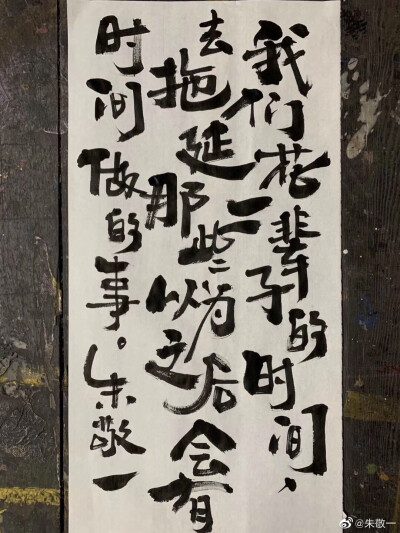 我们花一辈子的时间、
去拖延那些以为之后会有
时间做的事。朱敬一
@朱敬一